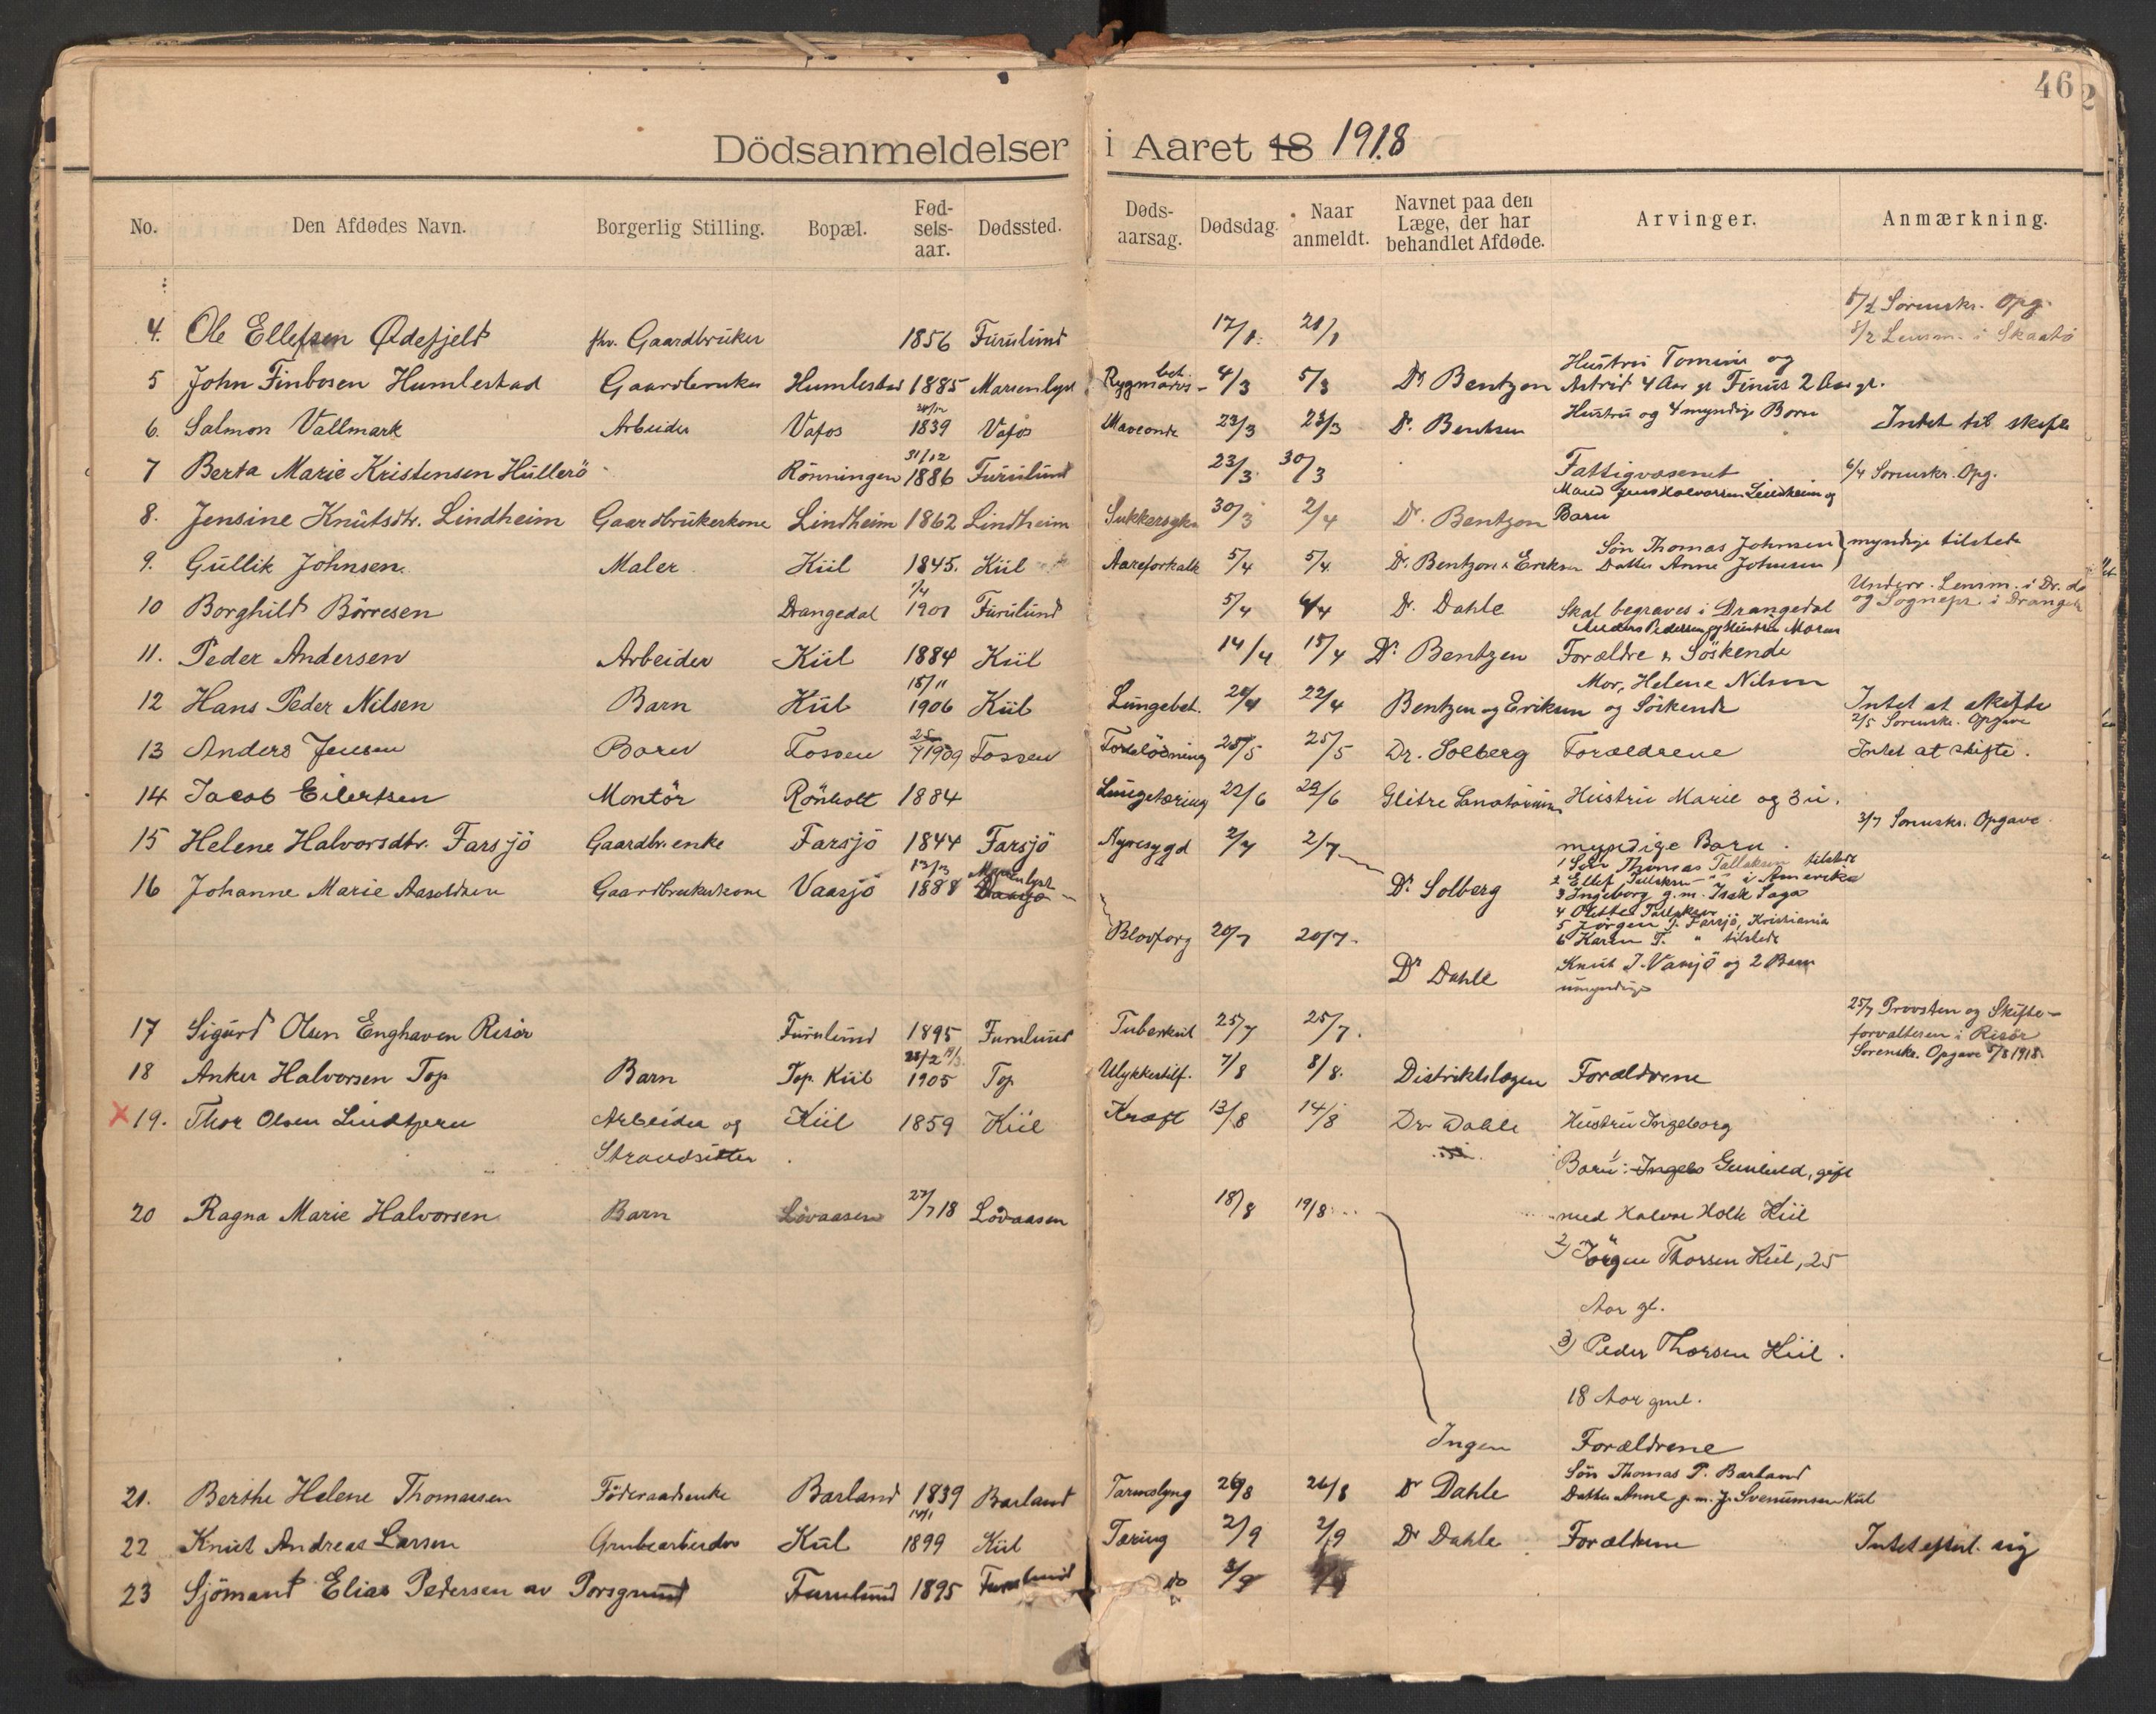 46
2
Dödsanmeldelser i Aaret 18 1918
No. Den Afdødes Navn. Borgerlig Stilling. Bopæl. Fødselsaar. Dødssted. Dødsaarsag. Dødsdag. Naar anmeldt. Navnet paa den Læge, der har behandlet Afdøde. Arvinger. Anmærkning.
5/2 Sorenskr. Opg.
4. Ole Ellefsen Ødefjeld fhv. Gaardbruker 1856 Furulund 17/1 21/1 8/2 Lensm. i Skaatö
Hustru og
5 John Finbosen Humlestad Gaardbruker Humlestad 1885 Marienlyst Rygmarvsbet. 4/3 5/3 Dr Bentzen Astrid 4 Aar gl Finus 2 Aar gl.
6. Salmon Vallmark Arbeider Vafos 1839 Vafos Maveonde 23/3 23/3 Dr. Bentsen Hustru og 4 myndige Born Intet til skifte
31/12
7 Berta Marie Kristensen Hullerö Rönningen 1886 Furulund 23/3 30/3 Fattigvæsenet 6/4 Sorenskr. Opg.
Mand Jens Halvorsen Lindheim og
8. Jensine Knutsdtr. Lindheim Gaardbrukerkone Lindheim 1862 Lindheim Sukkersyke 30/3 2/4 Dr. Bentzon Barn
Sön Thomas Johnsen } myndige tilstede
9. Gullik Johnsen. Maler Kiil 1845. Kiil Aareforkalk 5/4 5/4 Dr. Bentzon & Eriksen Datter Anne Johnsen
Underr. Lensm. i Dr.
1/4
10 Borghild Börresen Drangedal 1901 Furulund 5/4 6/4 Dr. Dahle Skal begraves i Drangedal og Sognepr. i Drangedal
Anders Pedersen og Hustru Maren
11. Peder Andersen Arbeider Kiil 1884 Kiil 14/4 15/4 Dr Bentzen Forældre & Söskende
15/11 Mor, Helene Nilsen
12 Hans Peder Nilsen Barn Kiil 1906 Kiil Lungebet. 20/4 22/4 Bentzen og Eriksen og Söskende Intet at skifte
2/5 Sorenskr. Opgave
13 Anders Jensen Barn Fossen 1909 Fossen 25/5 25/5 Dr. Solberg Forældrene Intet at skifte.
14 Jacob Eilertsen Montör Rönholt 1884 Lungetæring 22/6 29/6 Glitre Sanatorium Hustru Marie og 3 u.
3/7 Sorenskr. Opgave
15 Helene Halvorsdtr. Farsjö Gaardbr.enke Farsjö 1844 Farsjö Nyresygd 2/7 2/7 myndige Barn.
1 Sön Thomas Tallaksen tilstede
16 Johanne Marie Aasoldsen Gaardbrukerkone Vaasjö 1888 Marienlyst Vaasjö Dr. Solberg 2 Ellef Tallaksen i Amerika
3 Ingeborg g.m. Isak Saga
4 Tallaksen
5 Jörgen T. Farsjö, Kristiania
Blodforg 20/7 20/7. 6 Karen T. " tilstede
Dr Dahle Knut J. Vasjö og 2 Barn
umyndige
25/7 Provsten og Skifte-
17 Sigurd Olsen Enghaven Risör Furulund 1895 Furulund Tuberkul 25/7 25/7. forvalteren i Risör
Sorenskr. Opgave 5/8 1918.
18 Anker Halvorsen Top Barn Top. Kiil 1905 Top Ulykkestilf. 7/8 8/8. Distriktslægen Forældrene
x 19. Thor Olsen Lindtjern Arbeider og Kiil 1859 Kiil Kræft 13/8 14/8 Dr Dahle Hustru Ingeborg
Strandsitter Barn: 1 Ingeb Gunhild, gift
20 Ragna Marie Halvorsen Barn Lövaasen 27/7 18 Lövaasen 18/8 19/8 med Halvor Holte Kiil
2) Jörgen Thorsen Kiil, 25
Aar gl.
3) Peder Thorsen Kiil.
18 Aar gml.
Ingen Forældrene
Sön Thomas P. Barland
21. Berthe Helene Thomassen Föderaadsenke Barland 1839 Barland 26/8 26/8 Dr Dahle Datter Anne g.m. J. Svenumsen Kiil
22 Knut Andreas Larsen Grubearbeider Kiil 1899 Kiil Tæring 2/9 2/9 Dr Dahle Forældrene Intet efterl. sig
23 Sjömand Elias Pedersen av Porsgrund Furulund 1895 Furulund do 3/9